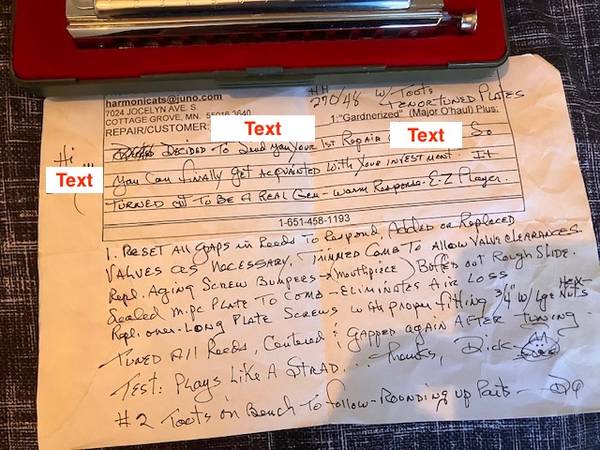 harmonicats@juno.com
7024 JOCELYN AVE. S.
COTTAGE GROVE, MN. 55016 3640
REPAIR/CUSTOMER:
HH
270/48 w/ Toots
TENOR TUNED PLATES
1:"Gardnerized" (Major O'haul) Plus:
Text
Text
Hi
Text
Decided To Send you your 1st Repair So
you Can finally get acquanted with your investment. It
TURNED out To Be A Real Gem - warm Response. E-Z Player.
1-651-458-1193
1. Reset All gaps in Reeds To Respond, Added or Replaced
Valves as necessary, Trimmed Comb To Allow Valve clearances
Repl. Aging Screw Bumpers → (mouthpiece) Buffed out Rough Slide.
Sealed m.pc Plate To Comb - Eliminates Air Loss
Repl. over-Long Plate Screws with proper-fitting 3/4" w/ Lge Hex-Nuts
Tuned All Reeds, Centered & gapped again After Tuning -
Test: Plays Like A Strad... Thanks, Dick -
#2 Toots on Bench To follow - Rounding up Parts -